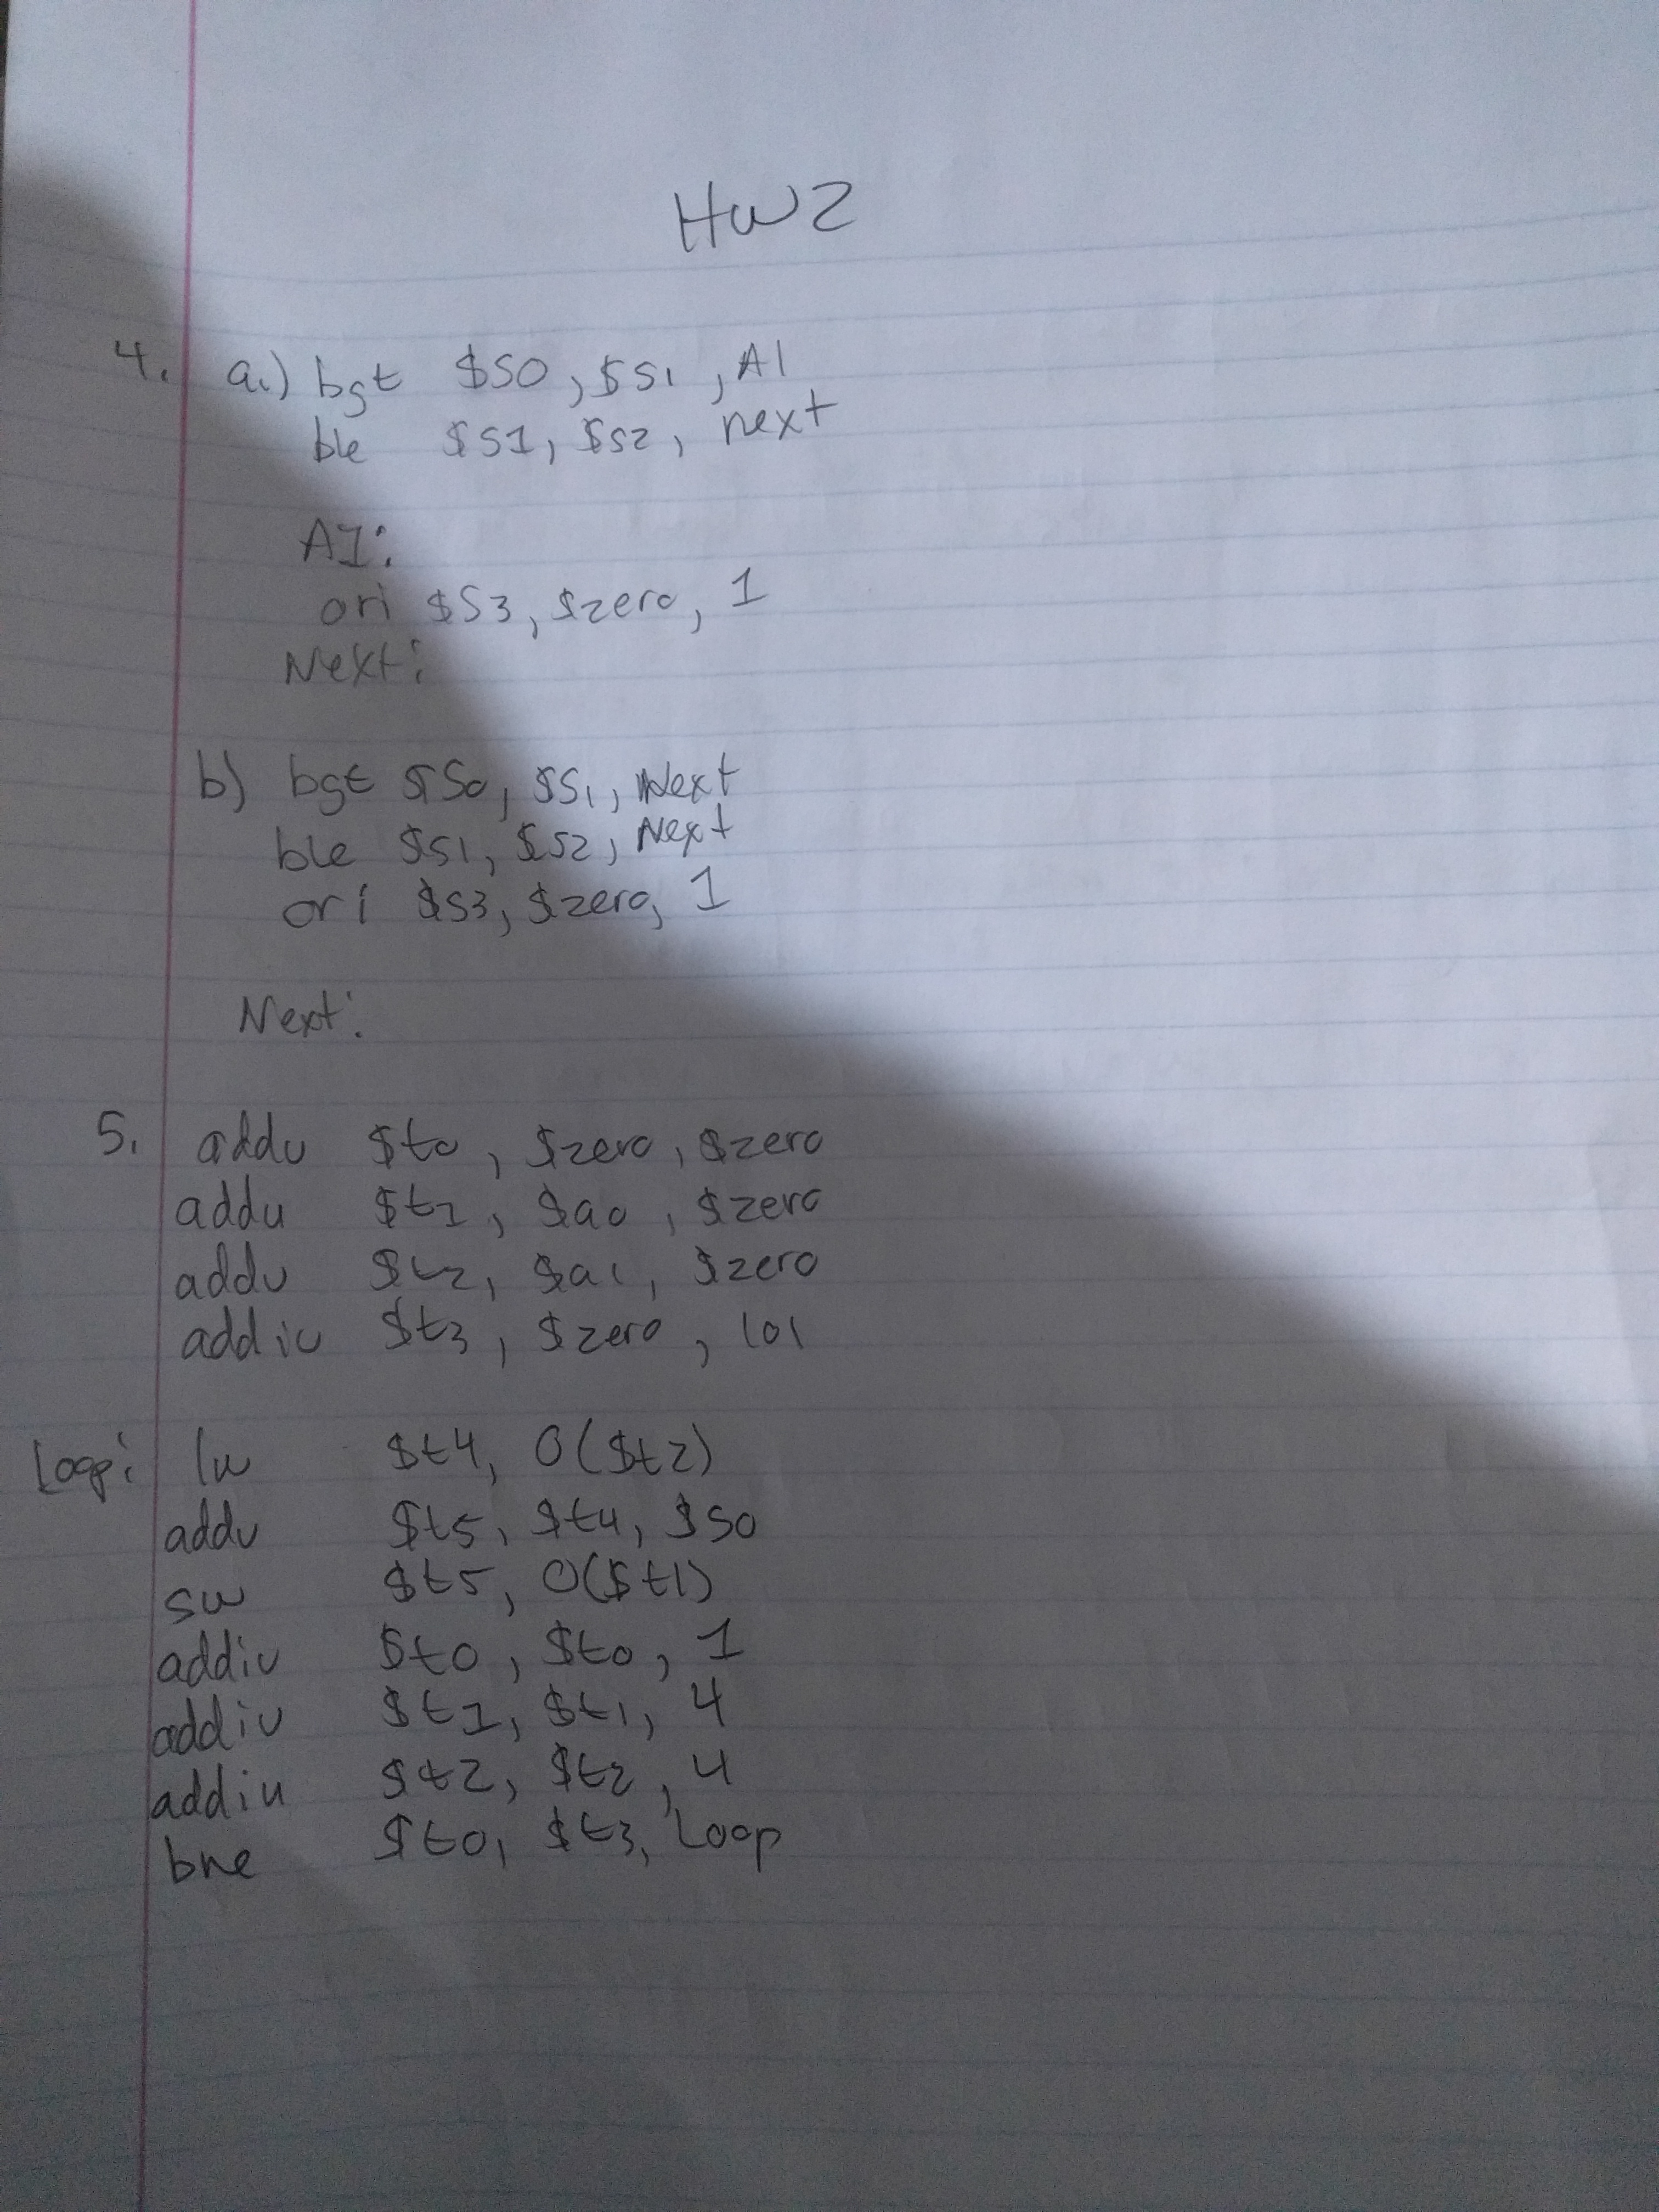 HW2
4. a.) bgt $S0, $S1, A1
ble $S1, $S2, next
A1:
ori $S3, $zero, 1
Next:
b) bgt $S0, $S1, Next
ble $S1, $S2, Next
ori $S3, $zero, 1
Next:
5. addu $t0, $zero, $zero
addu $t1, $a0, $zero
addu $t2, $a1, $zero
addiu $t3, $zero, 101
Loop: lw $t4, 0($t2)
addu $t5, $t4, $S0
sw $t5, 0($t1)
addiu $t0, $t0, 1
addiu $t1, $t1, 4
addiu $t2, $t2, 4
bne $t0, $t3, Loop